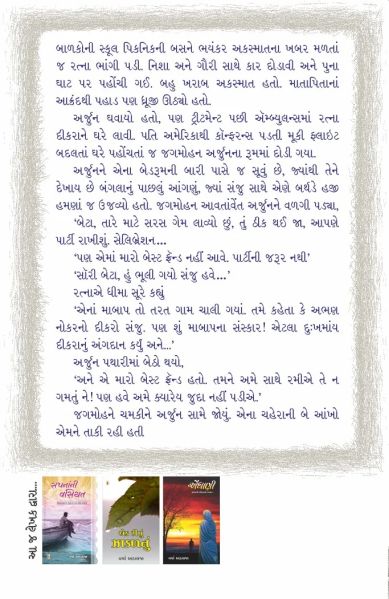 બાળકોની સ્કૂલ પિકનિકની બસને ભયંકર અકસ્માતના ખબર મળતાં
જ રત્ના ભાંગી પડી. નિશા અને ગૌરી સાથે કાર દોડાવી અને પુના
ઘાટ પર પહોંચી ગઈ. બહુ ખરાબ અકસ્માત હતો. માતાપિતાનાં
આક્રંદથી પહાડ પણ ધ્રૂજી ઊઠ્યો હતો.
અર્જુન ઘવાયો હતો, પણ ટ્રીટમેન્ટ પછી ઍમ્બ્યુલન્સમાં રત્ના
દીકરાને ઘરે લાવી. પતિ અમેરિકાથી કૉન્ફરન્સ પડતી મૂકી ફ્લાઇટ
બદલતાં ઘરે પહોંચતાં જ જગમોહન અર્જુનના રૂમમાં દોડી ગયા.
અર્જુનને એના બેડરૂમની બારી પાસે જ સૂવું છે, જ્યાંથી તેને
દેખાય છે બંગલાનું પાછલું આંગણું, જ્યાં સંજુ સાથે એણે બર્થડે હજી
હમણાં જ ઉજવ્યો હતો. જગમોહન આવતાંવેંત અર્જુનને વળગી પડ્યા,
‘બેટા, તારે માટે સરસ ગેમ લાવ્યો છું, તું ઠીક થઈ જા, આપણે
પાર્ટી રાખીશું, સેલિબ્રેશન...
‘પણ એમાં મારો બેસ્ટ ફ્રૅન્ડ નહીં આવે. પાર્ટીની જરૂર નથી’
‘સૉરી બેટા, હું ભૂલી ગયો સંજુ હવે...’
રત્નાએ ધીમા સૂરે કહ્યું
‘એનાં માબાપ તો તરત ગામ ચાલી ગયાં. તમે કહેતા કે અભણ
નોકરનો દીકરો સંજુ. પણ શું માબાપના સંસ્કાર! એટલા દુઃખમાંય
દીકરાનું અંગદાન કર્યું અને...’
અર્જુન પથારીમાં બેઠો થયો,
‘અને એ મારો બેસ્ટ ફ્રૅન્ડ હતો. તમને અમે સાથે રમીએ તે ન
ગમતું ને! પણ હવે અમે ક્યારેય જુદા નહીં પડીએ.’
જગમોહને ચમકીને અર્જુન સામે જોયું. એના ચહેરાની બે આંખો
એમને તાકી રહી હતી
આ જ લેખક દ્વારા...
સપનાંની
વસિયત
વર્ષા અડાલજા
એક હતું
ઝાડપાન
વર્ષા અડાલજા
એંધાણી
વર્ષા અડાલજા